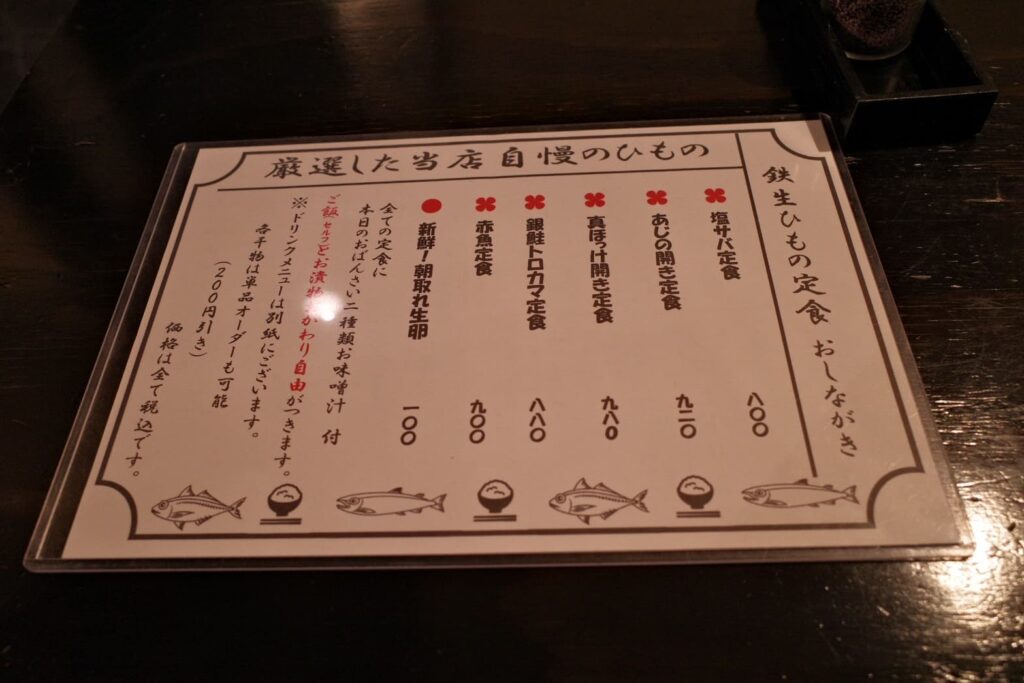 厳選した当店自慢のひもの
鉄生ひもの定食 おしながき
塩サバ定食 八〇〇
あじの開き定食 九二〇
真ほっけ開き定食 九八〇
銀鮭トロカマ定食 八八〇
赤魚定食 九〇〇
新鮮！朝取れ生卵 一〇〇
全ての定食に
本日のおばんさい二種類お味噌汁 付
ご飯セルフとお漬物 かわり自由がつきます。
※ドリンクメニューは別紙にございます。
各干物は単品オーダーも可能
（200円引き）
価格は全て税込です。